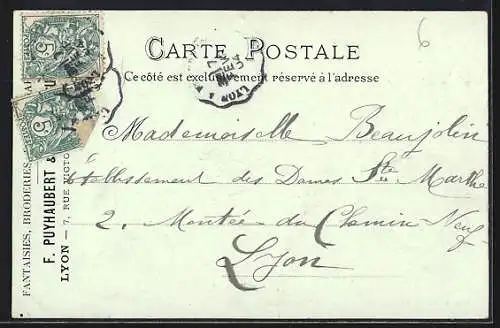 CARTE POSTALE
Ce côté est exclusivement réservé à l'adresse
6
Mademoiselle Beaujolin
Etablissement des Dames Ste Marthe
2. Montée du Chemin Neuf
Lyon
FANTAISIES, BRODERIES
F. PUYHAUBERT &
LYON — 7, RUE VICTO
5
5
LYON A